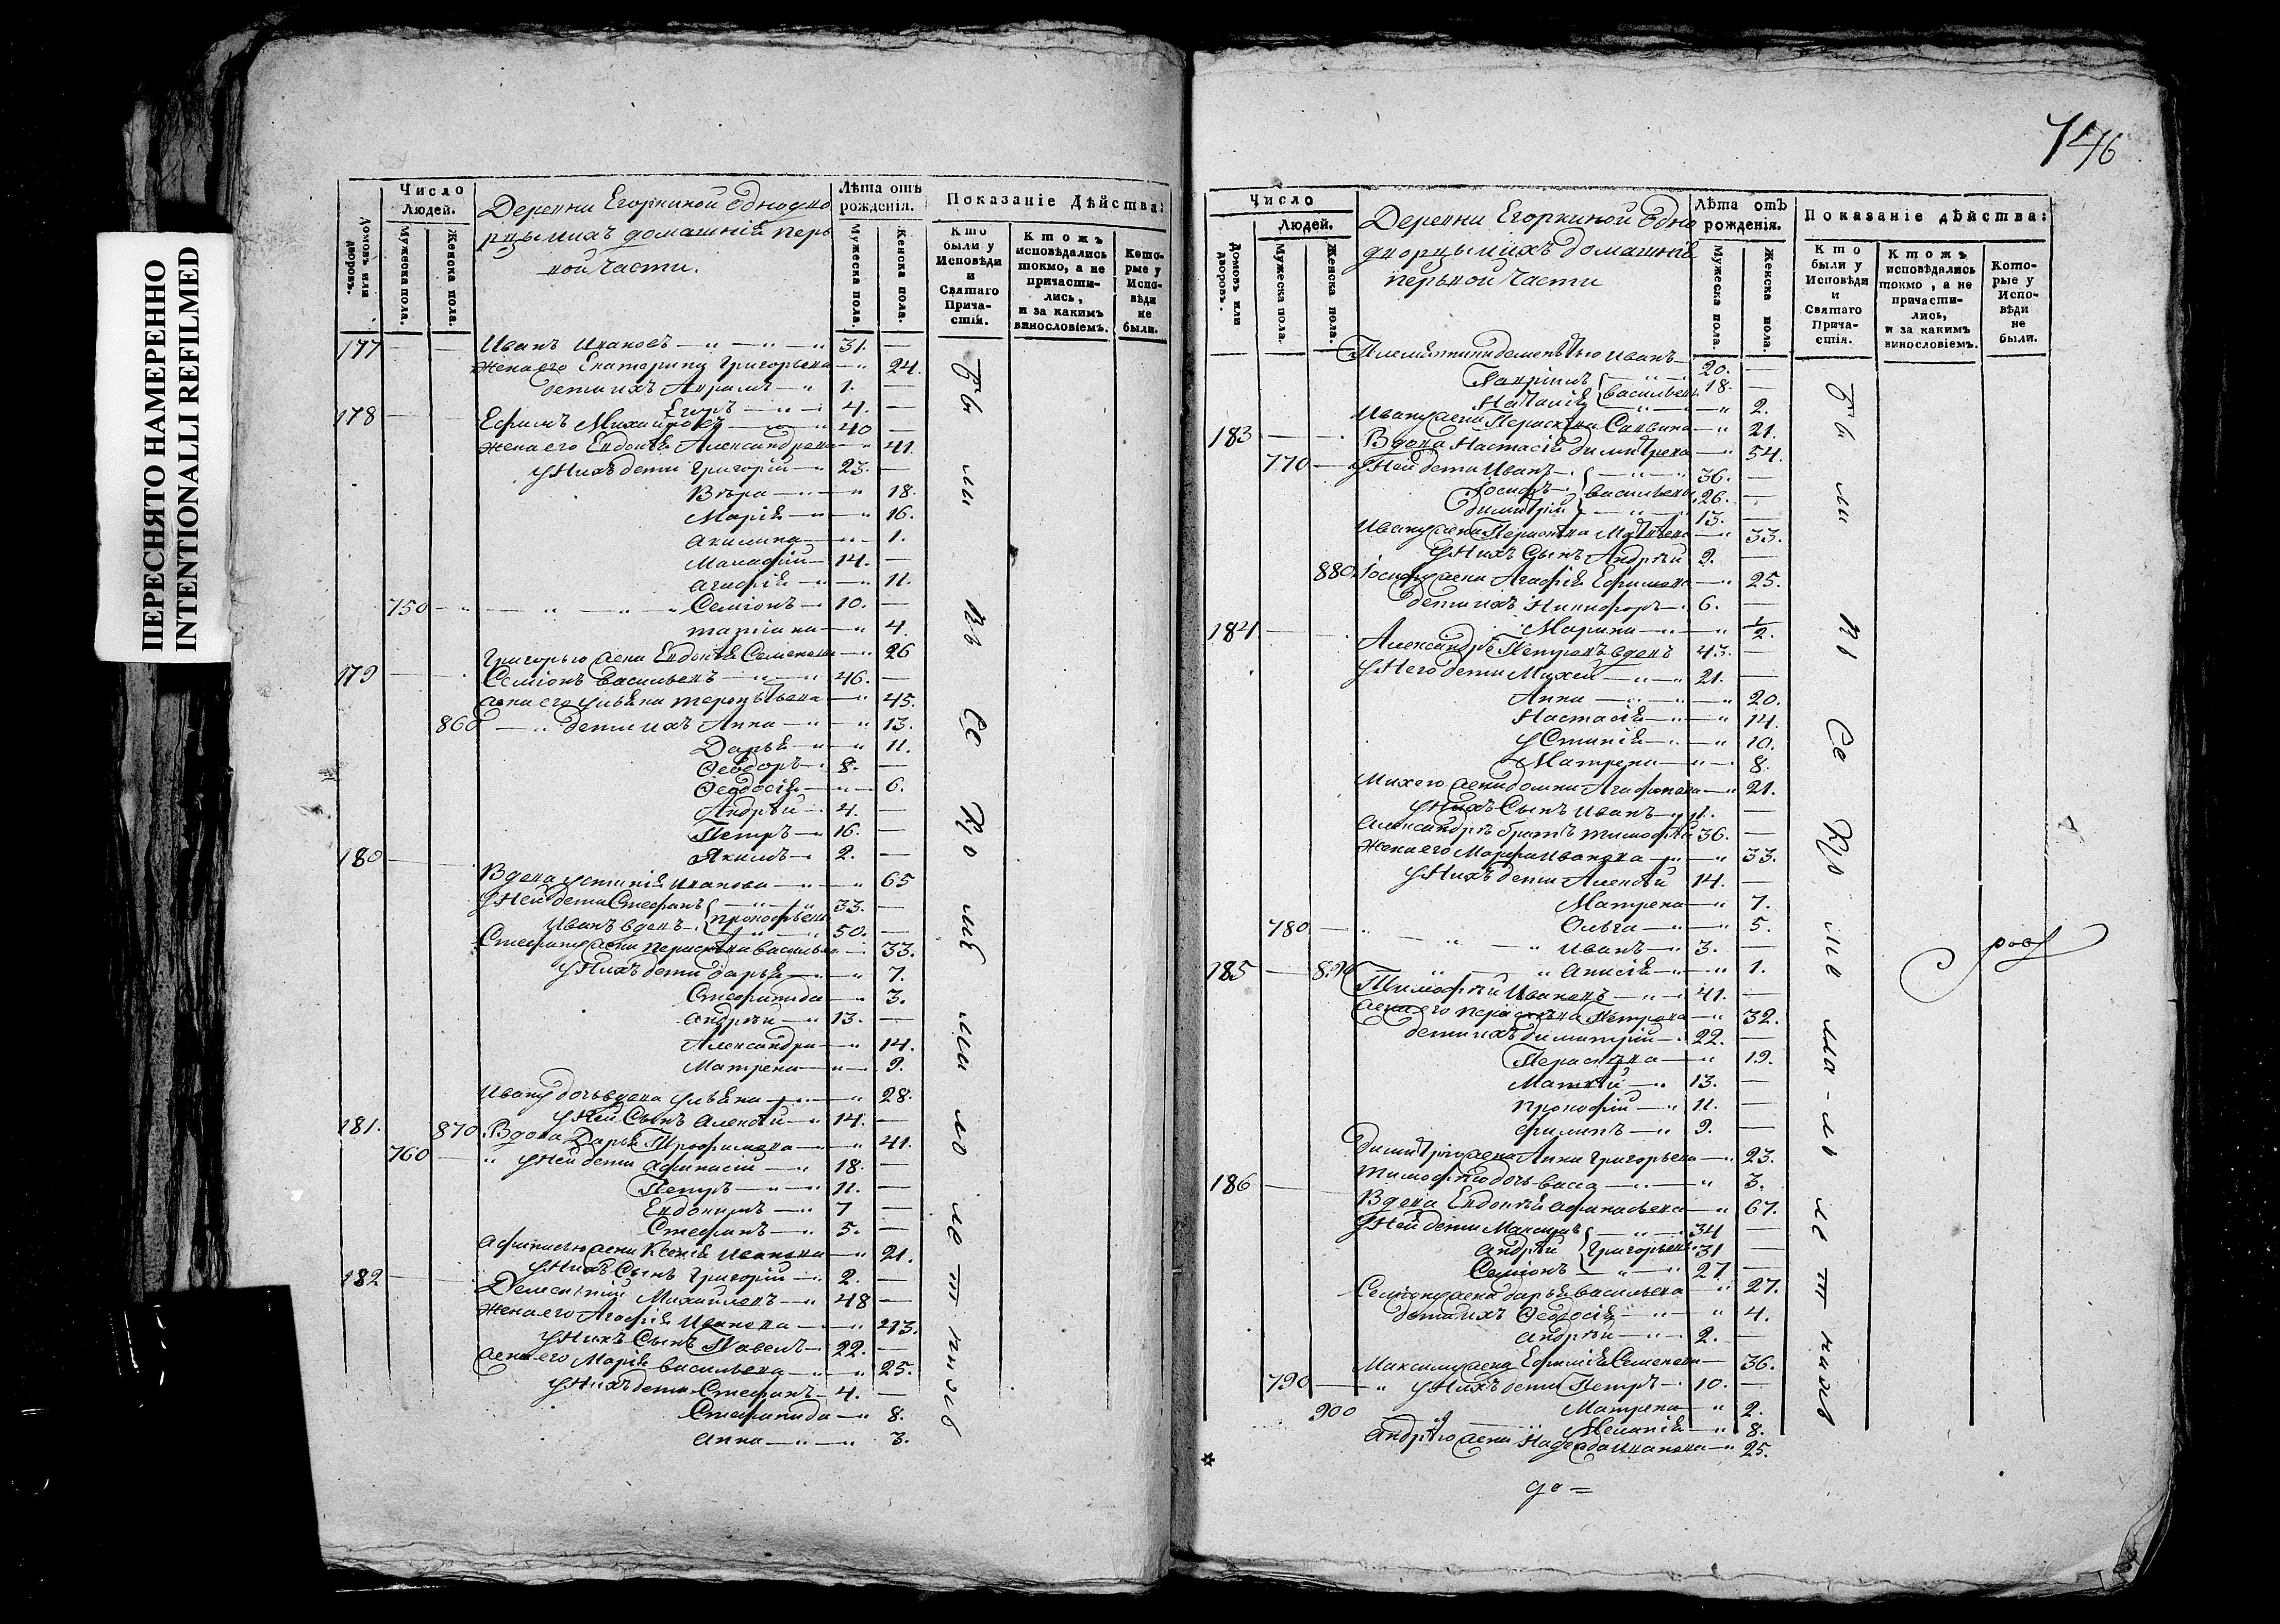 ПЕРЕСНЯТО НАМЕРЕННО
INTENTIONALLI REFILMED
Число Людей.
Домовъ или дворовъ.
Мужеска пола.
Женска пола.
Деревни Егоркиной Однодво
рцы ихъ домашній пер
вой части.
Лѣта отъ рожденія.
Мужеска пола.
Женска пола.
Показаніе Дѣйства:
Кто были у Исповѣди и Святаго Причастія.
Ктожъ исповѣдались токмо, а не причастились, и за какимъ винословіемъ.
Которые у Исповѣди не были.
177 Иванъ Ивановъ 31.
Жена его Екатерина Григорьева 24.
дети ихъ Аврамъ 1.
Егоръ 4.
178 Ефимъ Михайловъ 40
жена его Евдокія Александрова 41.
у Нихъ дети Григорій 23.
Вѣра 18.
Марія 16.
акилина 1.
Малафій 14.
агафія 11.
750 Семіонъ 10.
татіана 4.
Григорью жена Евдокія Семенова 26
179 Семіонъ Васильевъ 46.
жена его ульяна терентьева 45.
860 дети ихъ Анна 13.
Дарья 11.
Ѳеодоръ 8.
Ѳеодосія 6.
Андрѣй 4.
Петръ 16.
Якимъ 2.
180 Вдова устинія Иванова 65
у Ней дети Стефанъ 33.
Иванъ вдовъ прокофьевы 50.
Стефану жена параскева васильева 33.
у Нихъ дети дарья 7.
Стефанида 3.
андрѣй 13.
Александра 14.
Матрена 9.
Ивану дочь вдова ульяна 28.
у Ней Сынъ алексѣй 14.
181. 870 Вдова Дарья Трофимова 41.
760 у Ней дети афанасій 18.
Петръ 11.
Евдокимъ 7
Стефанъ 5.
афанасью жена Ксенія Иванова 21.
у Нихъ Сынъ Григорій 2.
182 Дементій Михайловъ 48
жена его Агафія Иванова 43.
у Нихъ Сынъ Павелъ 22.
жена его Марія васильева 25.
у Нихъ дети Стефанъ 4.
Стефанида 8.
анна 3.
746
Число Людей.
Домовъ или дворовъ.
Мужеска пола.
Женска пола.
Деревни Егоркиной Одно
дворцы ихъ домашній
первой части
Лѣта отъ рожденія.
Мужеска пола.
Женска пола.
Показаніе дѣйства:
Кто были у Исповѣди и Святаго Причастія.
Ктожъ исповѣдались токмо, а не причастились, и за какимъ винословіемъ.
Которые у Исповѣди не были.
Племянники дементью Иванъ 20.
Гавріилъ васильевы 18.
Наталія 2.
Ивану жена Параскева Саввина 21.
183 Вдова Настасія димитрева 54.
770 у Ней дети Иванъ 36.
Іосифъ васильевы 26.
димитрій 13.
Ивану жена Матвѣева 33.
у Нихъ Сынъ Андрѣй 9.
880 Іосифу жена Агафія Ефимова 25.
дети ихъ Никифоръ 6.
Марина 1/2.
184 Александръ Петровъ вдовъ 43.
у Него дети Михей 21.
Анна 20.
Настасія 14.
устинія 10.
Матрена 8.
Михею жена домна Агафонова 21.
у Нихъ Сынъ Иванъ 1.
александръ братъ тимофѣй 36.
жена его Марфа Иванова 33.
у Нихъ дети Алексѣй 14.
Матрена 7.
Ольга 5.
780 Иванъ 3.
890 анисія 1.
185 Тимофѣй Ивановъ 41.
жена его параскева Петрова 32.
дети ихъ димитрій 22.
Параскева 19.
Матвѣй 13.
прокофій 11.
филипъ 9.
димитрію жена Анна григорьева 23.
тимофѣю дочь васса 3.
186 Вдова Евдокія афанасьева 67.
у Ней дети Максимъ 34
андрѣй григорьевы 31
Семіонъ 27
Семіону жена дарья васильева 27.
дети ихъ Ѳеодосія 4.
андрѣй 2.
Максиму жена Ефимія Семенова 36.
790 у Нихъ дети Петръ 10.
900 Матрена 2.
Меланія 8.
андрѣю жена Надежда Иванова 25.